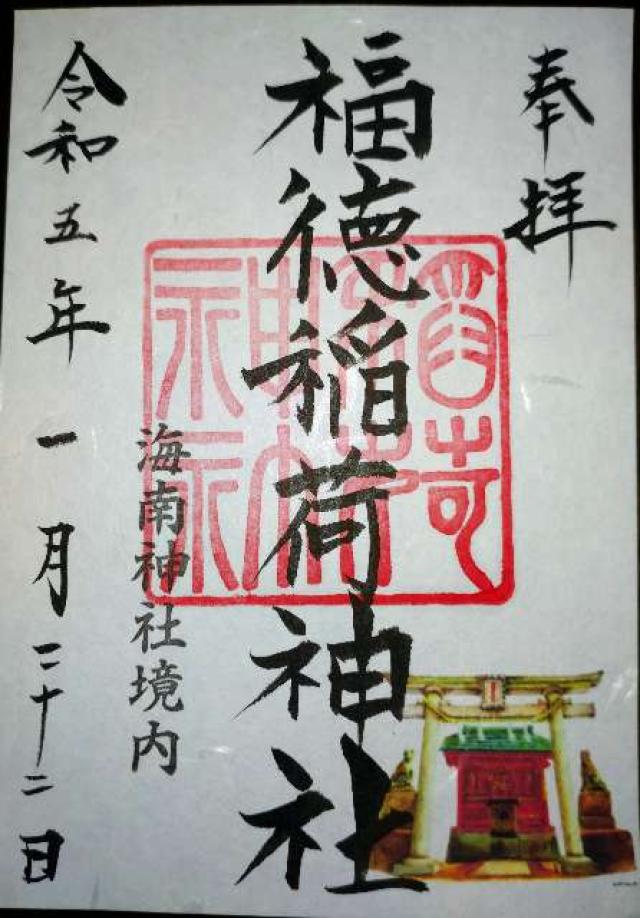 奉拝
福徳稲荷神社
海南神社境内
令和五年一月二十二日